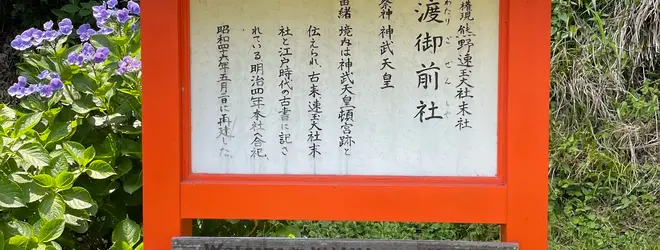 権現 熊野速玉大社末社
渡御前社
わたりごぜんしゃ
祭神 神武天皇
由緒 境内は神武天皇頓宮跡と
伝えられ、古来速玉大社末
社と江戸時代の古書に記さ
れている 明治四年本社へ合祀
昭和四十六年五月二日に再建した